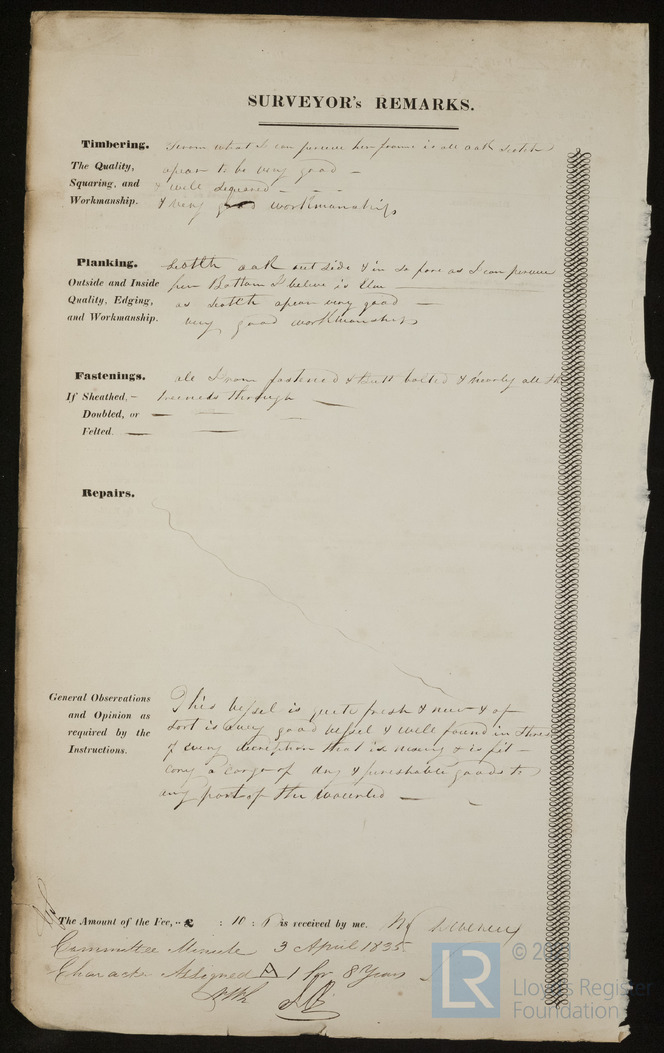 SURVEYOR'S REMARKS.
Timbering. From what I can perceive her frame is all oak Scotch
The Quality, apear to be very good —
Squaring, and & well squared — — —
Workmanship. & very good workmanship
Planking. Scotth oak out side & in so fare as I can perceive
Outside and Inside her Bottom I believe is Elm —
Quality, Edging, as Scotth apear very good —
and Workmanship. very good workmanship
Fastenings. all Iron fastned & butt bolted & nearly all the
If Sheathed, – treeneds through —
Doubled, or — — —
Felted. — —
Repairs.
General Observations This vessel is quite fresh & new & of
and Opinion as sort is a very good vessel & well found in stores
required by the of every decreption that is nesery & is fit –
Instructions. cary a Cargo of dry & perishable goods to
any part of the wourled —
The Amount of the Fee, -- £ : 10 : 6 is received by me.
Committee Minute 3 April 1835
Character Assigned A 1 for 8 Years
LR
© 2021
Lloyd's Register
Foundation